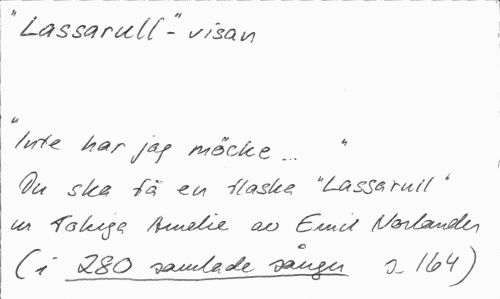 "Lassarull"-visan
"Inte har jag möcke... "
Du ska få en flaska "Lassarull"
ur Tokiga Amelie av Emil Norlander
(i 280 samlade sånger s 164)